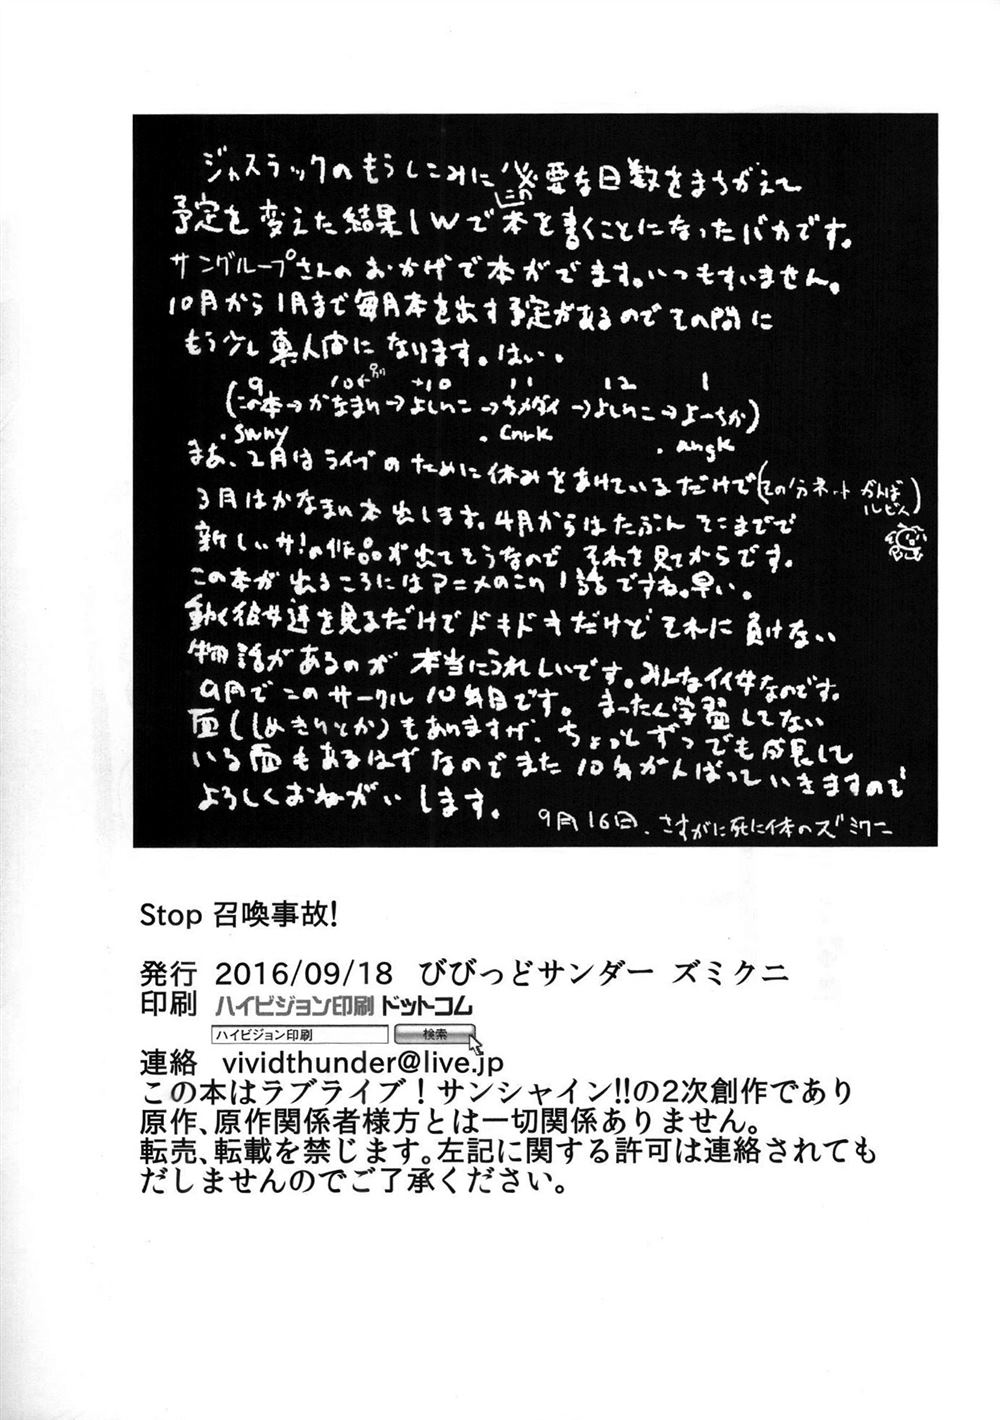 ジャスラックのもうしこみに必要な日数をまちがえて
予定を変えた結果1Wで本を書くことになったバカです。
サングループさんのおかげで本がでます。いつもすいません。
10月から1月まで毎月本を出す予定があるのでその間に
もう少し真人間になります。はい。
9 10 +10 11 12 1
(この本→かなまり→よしりこ→ちかダイ→よしりこ→よーちか)
.sunny .Cnrk .angk
まあ、2月はライブのために休みをあけているだけで(その分ネットがんばルビィ)
3月はかなまり本出します。4月からはたぶんそこまでで
新しいサ!の作品が出てそうなのでそれを見てからです。
この本が出るころにはアニメのこり1話ですね。早い。
動く彼女達を見るだけでドキドキだけどそれに負けない
物語があるのが本当にうれしいです。みんなイイ女なのです。
9月でこのサークル10年目です。まったく学習してない
面(しめきりとか)もありますが、ちょっとずつでも成長して
いる面もあるはずなのでまた10年がんばっていきますので
よろしくおねがいします。
9月16日、さすがに死に体のズミクニ
Stop 召喚事故!
発行 2016/09/18 びびっどサンダー ズミクニ
印刷 ハイビジョン印刷 ドットコム
ハイビジョン印刷 検索
連絡 vividthunder@live.jp
この本はラブライブ!サンシャイン!!の2次創作であり
原作、原作関係者様方とは一切関係ありません。
転売、転載を禁じます。左記に関する許可は連絡されても
だしませんのでご了承ください。